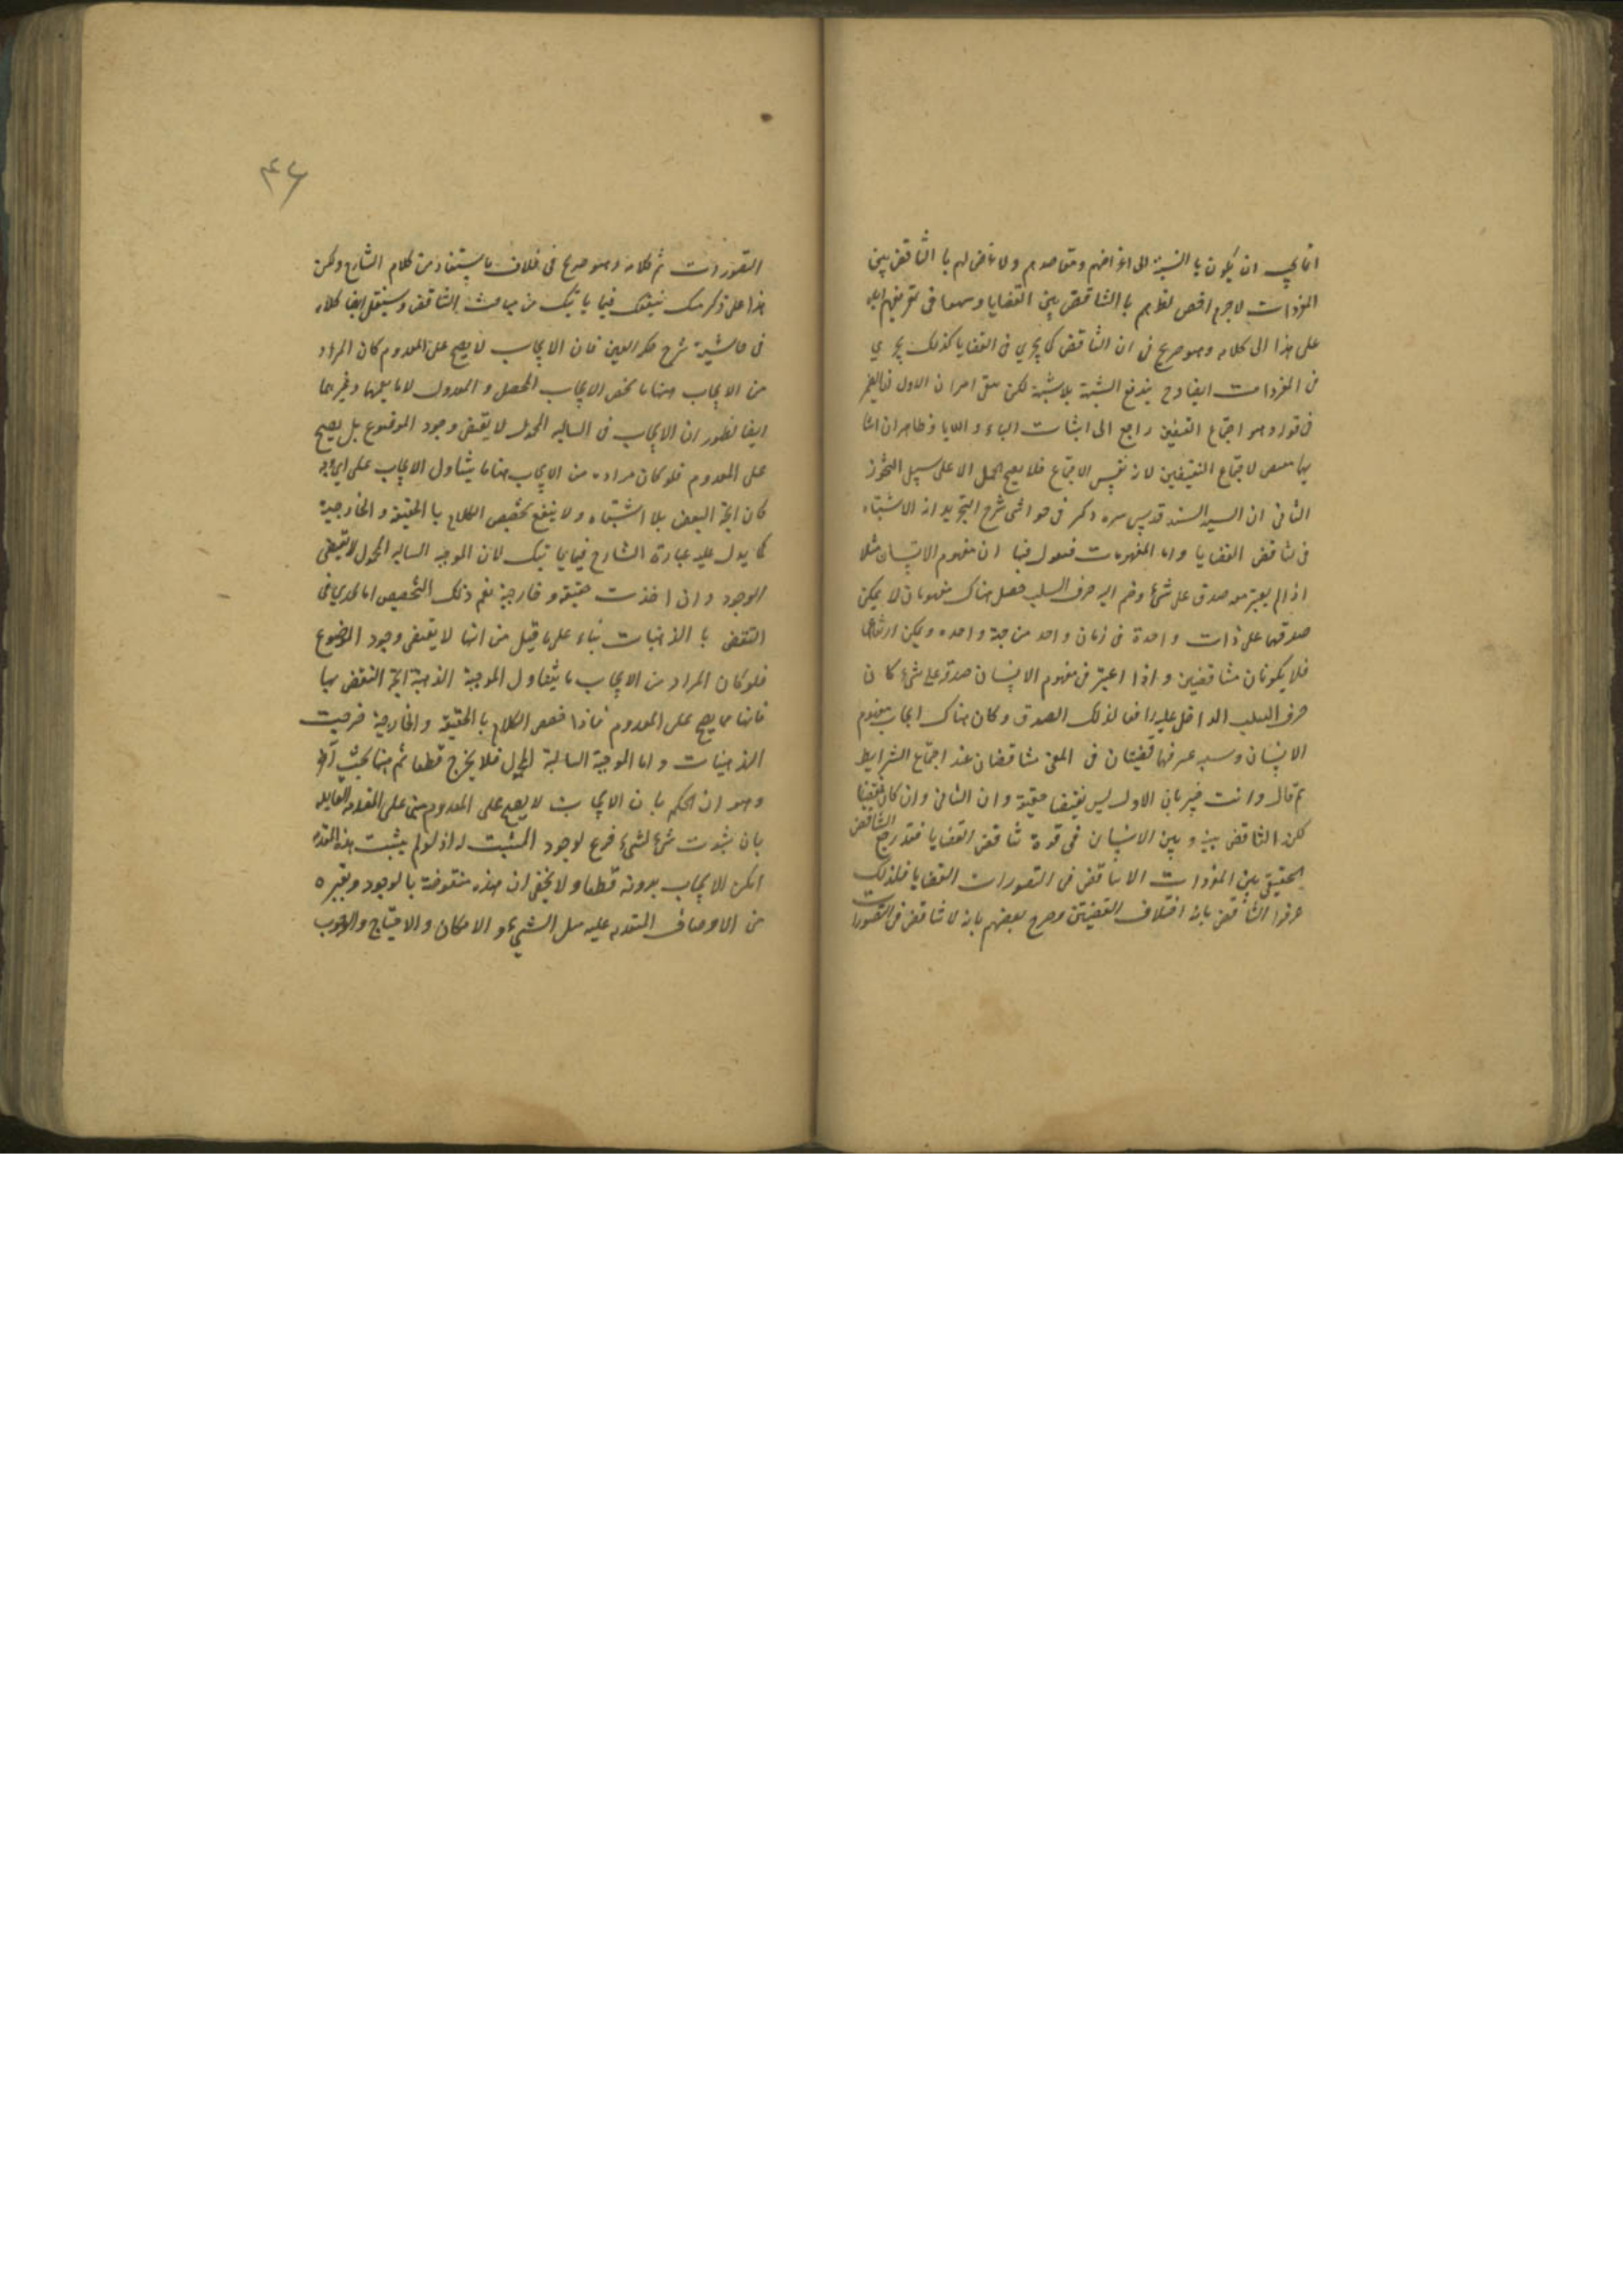 انما يجب ان يكون بالنسبة الى اغراضهم ومقاصدهم ولا غرض لهم بالتناقض بين
المفردات لاجرم اختص نظرهم بالتناقض بين القضايا وسمعا فى تعريفهم اياه
على هذا الى كلامه وهو صريح فى ان التناقض كما يجرى فى القضايا كذلك يجرى
فى المفردات ايضا وح يندفع الشبهة بلا شبهة لكن بقى امران الاول ان الضمير
فى قوله وهو اجتماع النقيضين راجع الى اثبات الباء واللاباء وظاهر ان اثبا
تهما ملا لاجتماع النقيضين لانه نفس الاجتماع فلا يصح الحمل الا على سبيل التجوز
الثانى ان السيد السند قدس سره ذكر فى حواشى شرح التجريد انه لا اشتباه
فى تناقض القضايا واما المفهومات فنقول فيها ان مفهوم الانسان مثلا
اذا لم يعتبر معه صدق على شئ وضم اليه حرف السلب حصل هناك مفهومان لا يمكن
صدقهما على ذات واحدة فى زمان واحد من جهة واحده ويمكن ارتفاعهما
فلا يكونان متناقضين واذا اعتبر فى مفهوم الانسان صدقه على شئ كان
حرف السلب الداخل عليه رافعا لذلك الصدق وكان هناك ايجاب مفهوم
الانسان وسلبه عنه فهما قضيتان فى المعنى متناقضتان عند اجتماع الشرايط
ثم قال وانت خبير بان الاول ليس نقيضا حقيقة وان الثانى وان كان نقيضا
لكن التناقض بينه وبين الانسان فى قوة تناقض القضايا فقد رجع التناقض
الحقيقى بين المفردات الا تناقض فى التصورات القضايا فلذلك
عرفوا التناقض بانه اختلاف القضيتين وصرح بعضهم بانه لا تناقض فى التصورات
٤٦
التصورات تم كلامه وهو صريح فى خلاف ما يستفاد من كلام الشارح ولكن
هذا على ذكر منك ينفعك فيما ياتيك من مباحث التناقض وسينقل ايضا كلامه
فى حاشية شرح حكمة العين فان الايجاب لا يصح على المعدوم كان المراد
من الايجاب هنا ما يخص الايجاب المحصل والمعدول لا ما يعمهما وغيرهما
ايضا لظهور ان الايجاب فى السالبة المحمول لا يقتضى وجود الموضوع بل يصح
على المعدوم فلو كان مراده من الايجاب هنا ما يتناول الايجاب على اى وجه
كان اتجه النقض بلا اشتباه ولا ينفع تخصيص الكلام بالحقيقية والخارجية
كما يدل عليه عبارة الشارح فيما ياتيك لان الموجبة السالبة المحمول لا تقتضى
الوجود وان اخذت حقيقية وخارجية نعم ذلك التخصيص انما يجدى فى
النقض بالذهنيات بناء على ما قيل من انها لا يقتضى وجود الموضوع
فلو كان المراد من الايجاب ما يتناول الموجبة الذهنية اتجه النقض بها
فانها مما يصح على المعدوم فاذا خصص الكلام بالحقيقية والخارجية خرجت
الذهنيات واما الموجبة السالبة المحمول فلا يخرج قطعا ثم هنا بحث آخر
وهو ان الحكم بان الايجاب لا يصح على المعدوم مبنى على المقدمة القايله
بان ثبوت شئ لشئ فرع لوجود المثبت له اذ لو لم يثبت هذه المقدمه
امكن الايجاب بدونه قطعا ولا يخفى ان هذه منقوضة بالوجود وبغيره
من الاوصاف المتقدمه عليه مثل الشيئ والامكان والاحتياج والوجوب